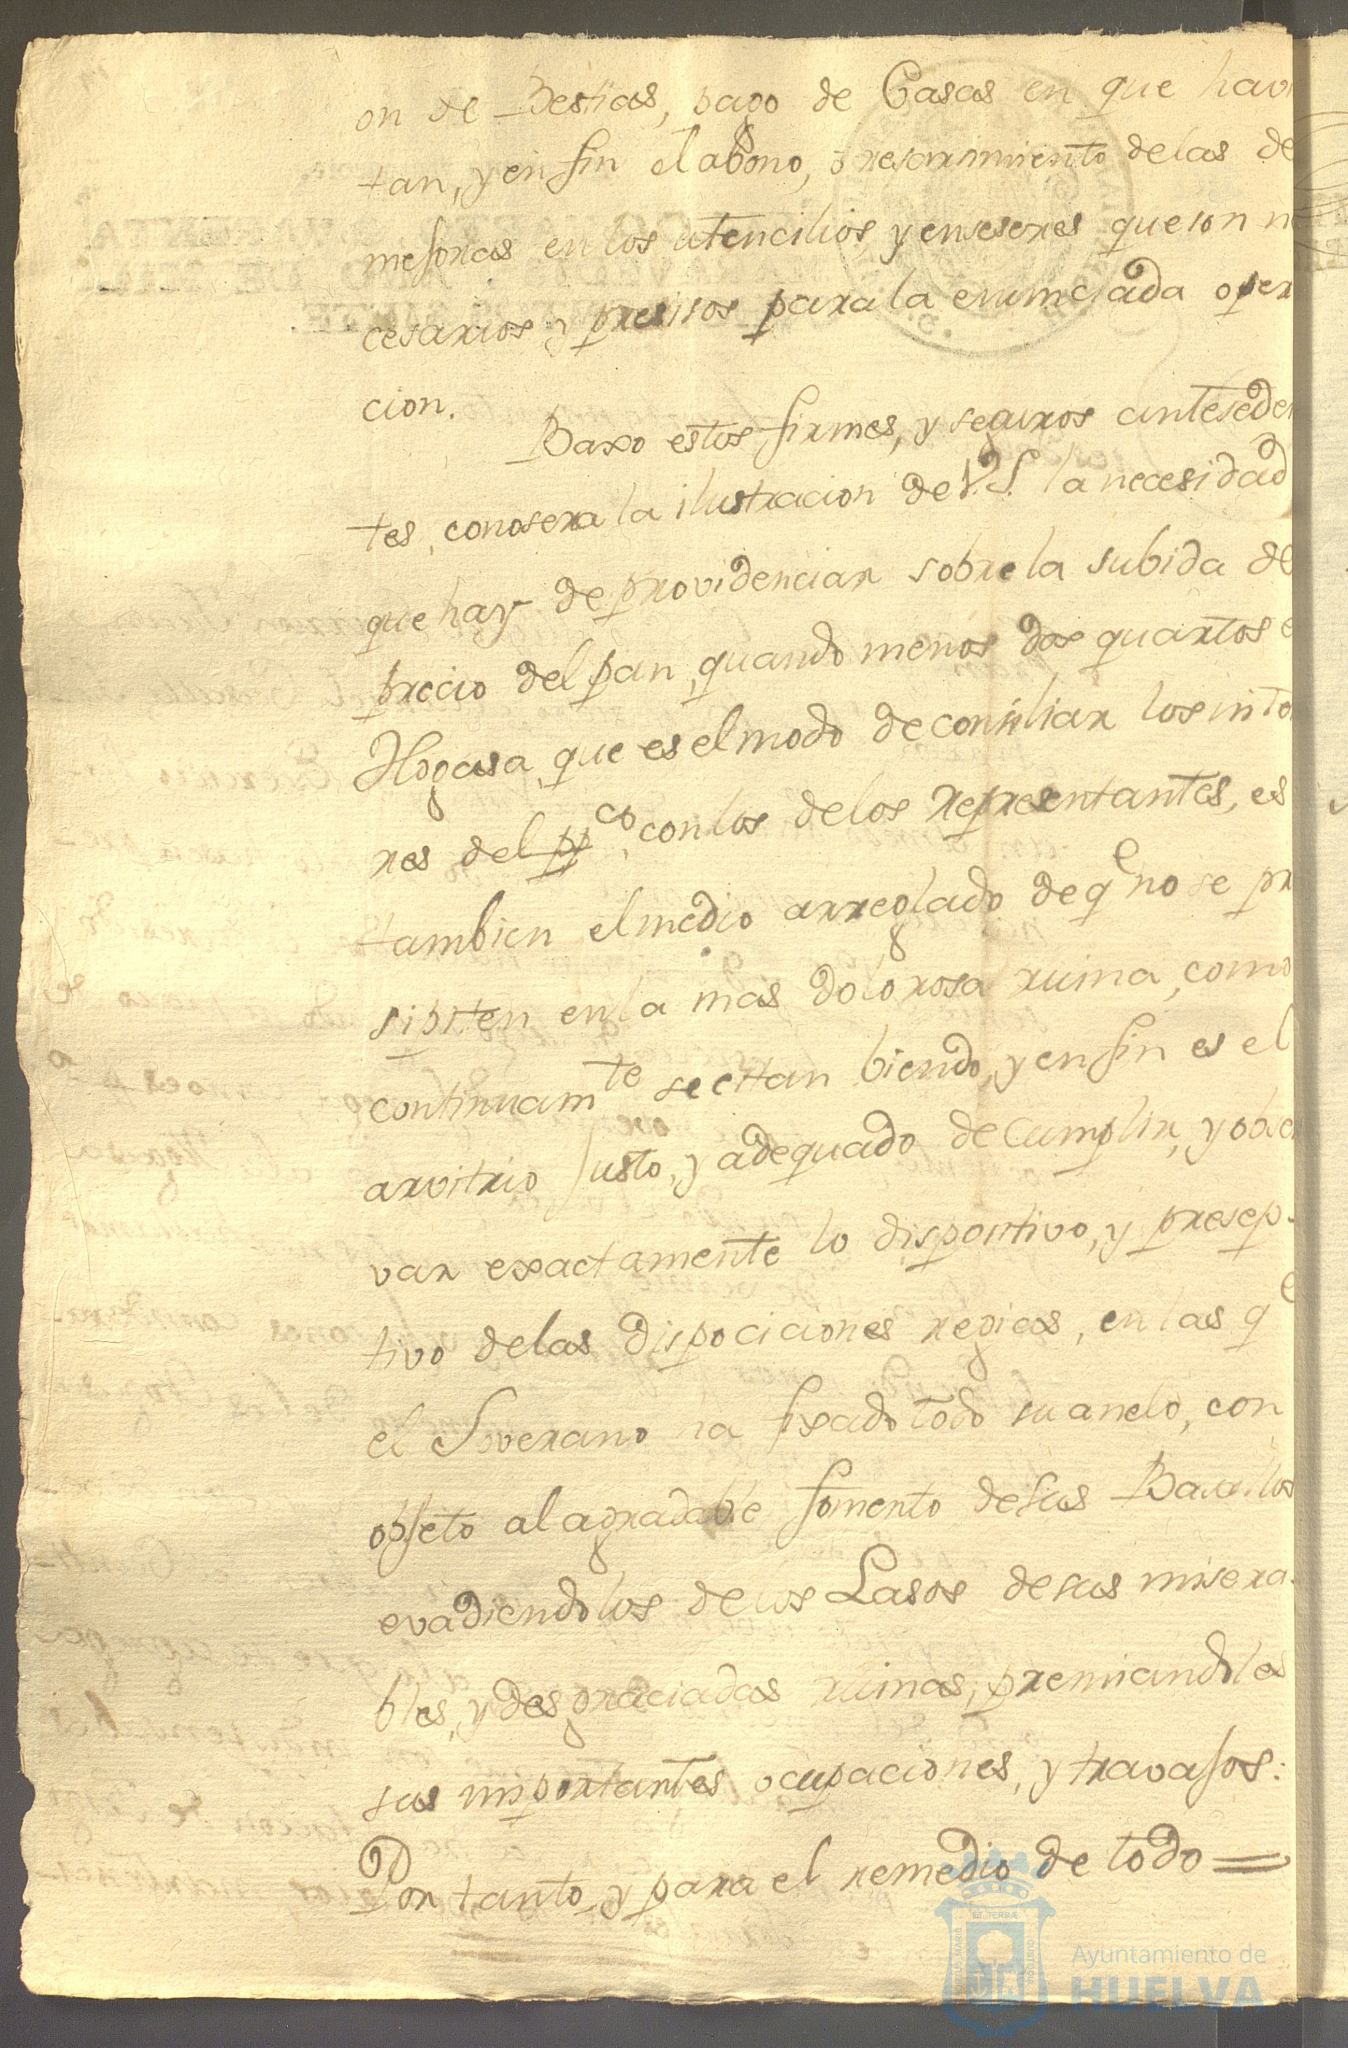 on de Bestias, pago de Casas en que havi
tan, y en fin el abono, o resarimiento delas de
mejoras en los utencilios, y enseseres que son n
cesarios y presisos para la enunciada oper
cion.
Baxo estos firmes, y seguros anteseden
tes, conosera la ilustracion de V.S. la necesidad
que hay de providenciar sobre la subida de
precio del pan, quando menos dos quartos e
Hogasa, que es el modo de consiliar los inte
res del ppco, con los de los representantes, es
tambien el medio arreglado de qe no se pr
sipiten en la mas dolorosa ruina, como
continuamte se estan biendo, y en fin es el
arvitrio Justo, y adequado de Cumplir, y obser
var exactamente lo dispositivo, y presep-
tivo delas dispociciones regias, en las qe
el Soverano ha fixado todo su anelo, con
objeto al agradable fomento de sus Basallos
evadiendolos de los Lasos de sus misera-
bles, y desgraciadas ruinas, premiandoles
sus importantes ocupaciones, y travajos:
Por tanto, y para el remedio de todo =
Ayuntamiento de
HUELVA